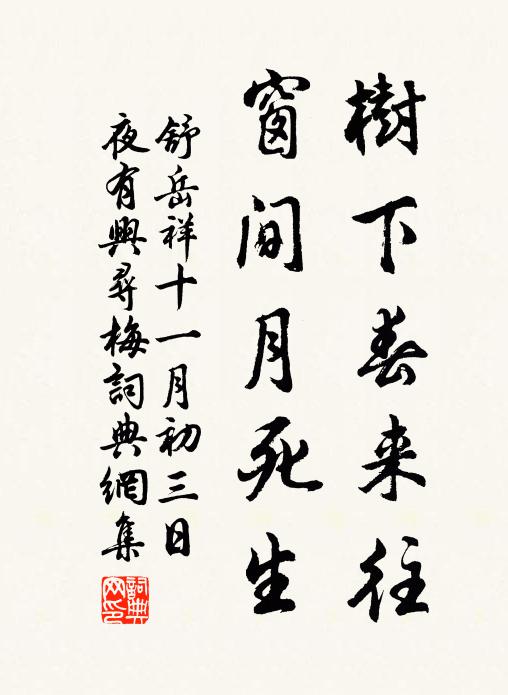 樹下春来往
窗间月死生
舒岳祥十一月初三日
夜有興尋梅詞典網集
詞典
网印